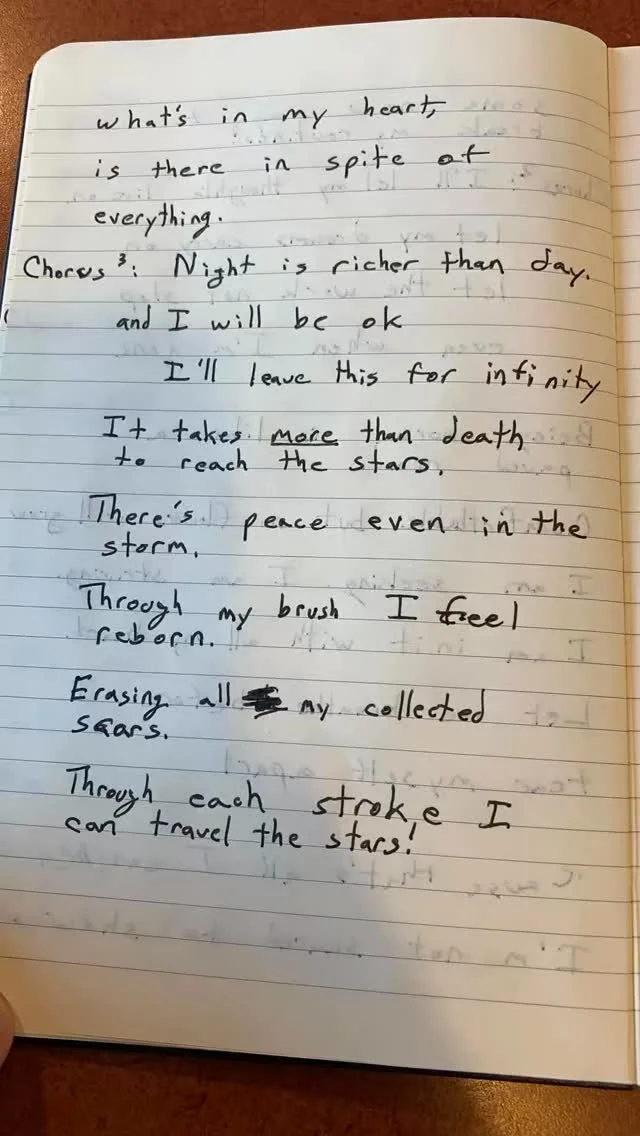 what's in my heart,
is there in spite of
everything.
Chorus ³: Night is richer than day.
and I will be ok
I'll leave this for infinity
It takes more than death
to reach the stars.
There's peace even in the
storm.
Through my brush I feel
reborn.
Erasing all my collected
scars.
Through each stroke I
can travel the stars!